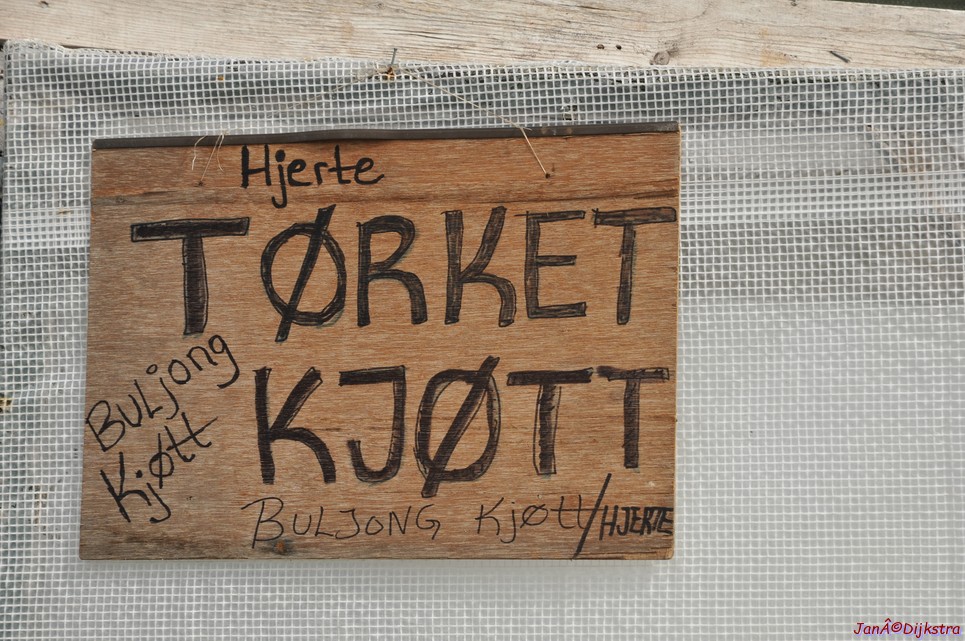 Hjerte
TØRKET
KJØTT
BULjong
Kjøtt
BULJONG Kjøtt/HJERTE
JanÂ©Dijkstra